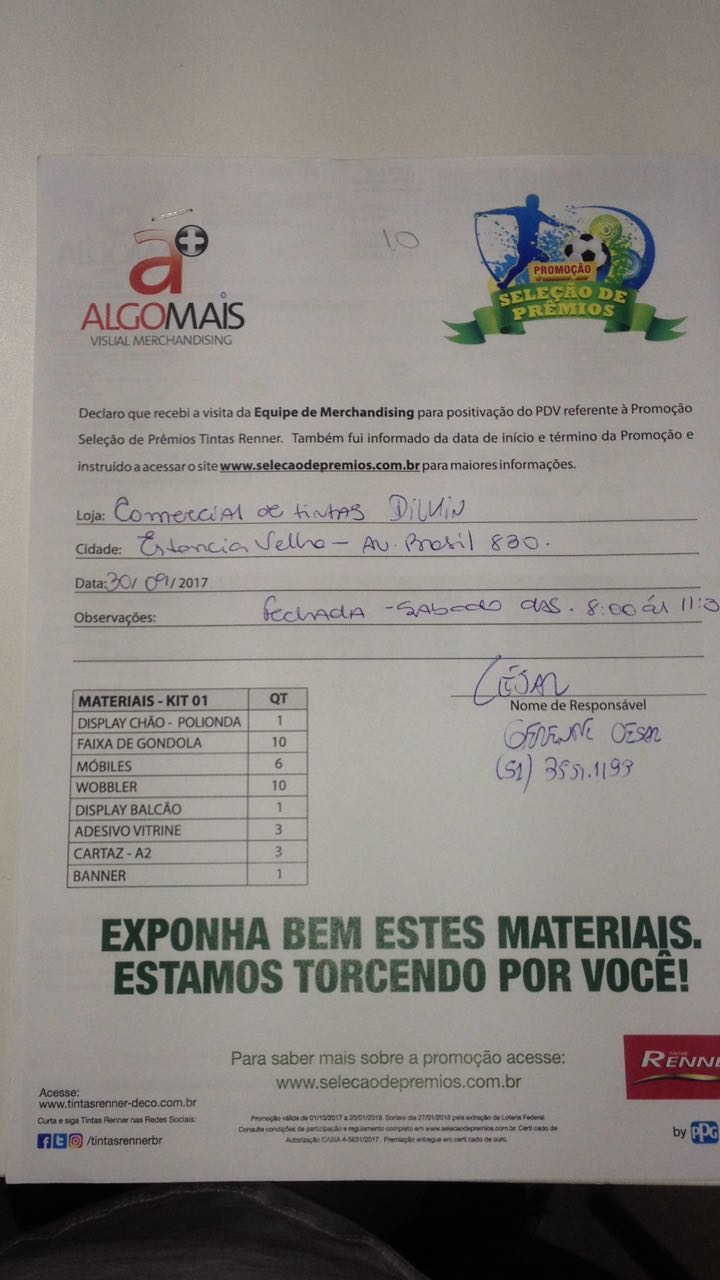 10
a+
ALGOMAIS
VISUAL MERCHANDISING
PROMOÇÃO
SELEÇÃO DE
PRÊMIOS
Declaro que recebi a visita da Equipe de Merchandising para positivação do PDV referente à Promoção
Seleção de Prêmios Tintas Renner. Também fui informado da data de início e término da Promoção e
instruído a acessar o site www.selecaodepremios.com.br para maiores informações.
Loja: Comercial de tintas
Cidade: Estancia Velha - AV. Brasil 830.
Data: 30/09/2017
Observações: Fechada - Sabado das. 8:00 ás 11:3
CÉSAR
Nome de Responsável
GERENTE CESAR
(51)
MATERIAIS - KIT 01 QT
DISPLAY CHÃO - POLIONDA 1
FAIXA DE GONDOLA 10
MÓBILES 6
WOBBLER 10
DISPLAY BALCÃO 1
ADESIVO VITRINE 3
CARTAZ - A2 3
BANNER 1
EXPONHA BEM ESTES MATERIAIS.
ESTAMOS TORCENDO POR VOCÊ!
Para saber mais sobre a promoção acesse:
www.selecaodepremios.com.br
TINTAS
RENNE
Acesse:
www.tintasrenner-deco.com.br
Curta e siga Tintas Renner nas Redes Sociais:
/tintasrennerbr
Promoção válida de 01/10/2017 a 20/01/2018. Sorteio dia 27/01/2018 pela extração da Loteria Federal.
Consulte condições de participação e regulamento completo em www.selecaodepremios.com.br. Certi cado de
Autorização CAIXA 4-5631/2017. Premiação entregue em certi cado de ouro.
by PPG